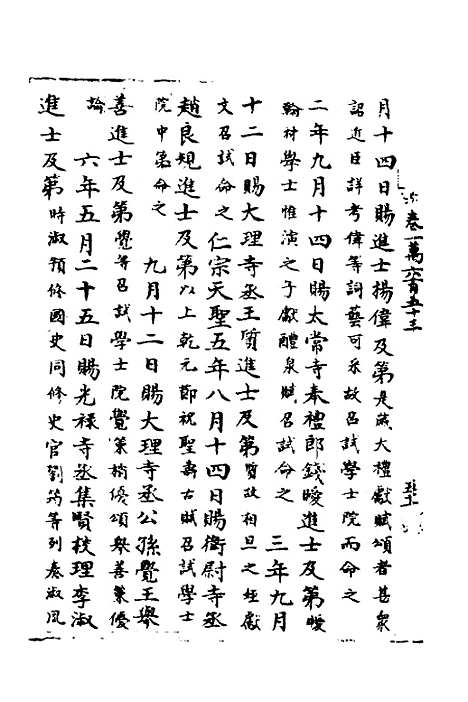 卷一萬六百五十三
月十四日賜進士楊偉及第是歲大禮獻賦頌者甚衆
詔近臣詳考偉等詞藝可采故召試學士院而命之
二年九月十四日賜太常寺奉禮郎錢曖進士及第曖
翰林學士惟演之子獻醴泉賦召試命之　三年九月
十二日賜大理寺丞王質進士及第質故相旦之姪獻
文召試命之　仁宗天聖五年八月十四日賜衛尉寺丞
趙良規進士及第以上乾元節祝聖壽古賦召試學士
院中第命之　九月十二日賜大理寺丞公孫覺王舉
善進士及第覺等召試學士院覺策稍優頌舉善策優
論　六年五月二十五日賜光祿寺丞集賢校理李淑
進士及第時淑預修國史同修史官劉筠等列奏淑風